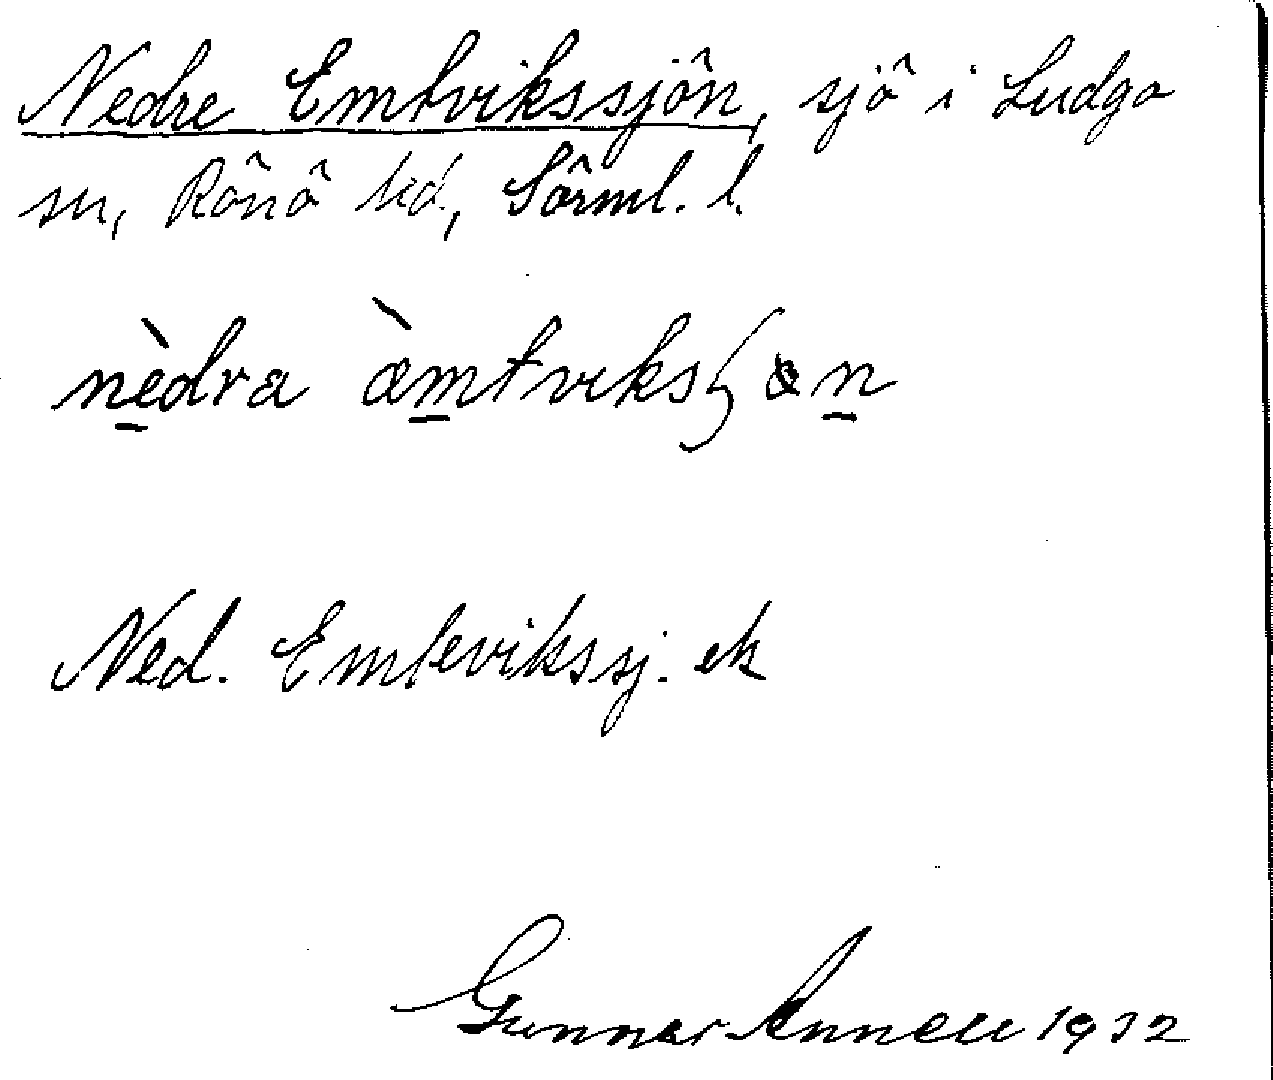 Nedre Emtvikssjön, sjö i Ludgo
sn, Rönö hd, Sörml. l.
nèdra æ̀mtviksʃøn
Ned. Emtevikssj. ek
Gunnar Annell 1932